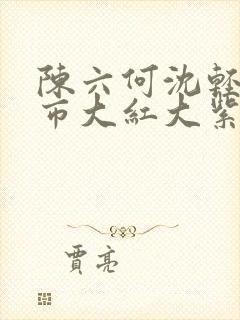 陳六何沈輕
币大紅大紫
賈亮